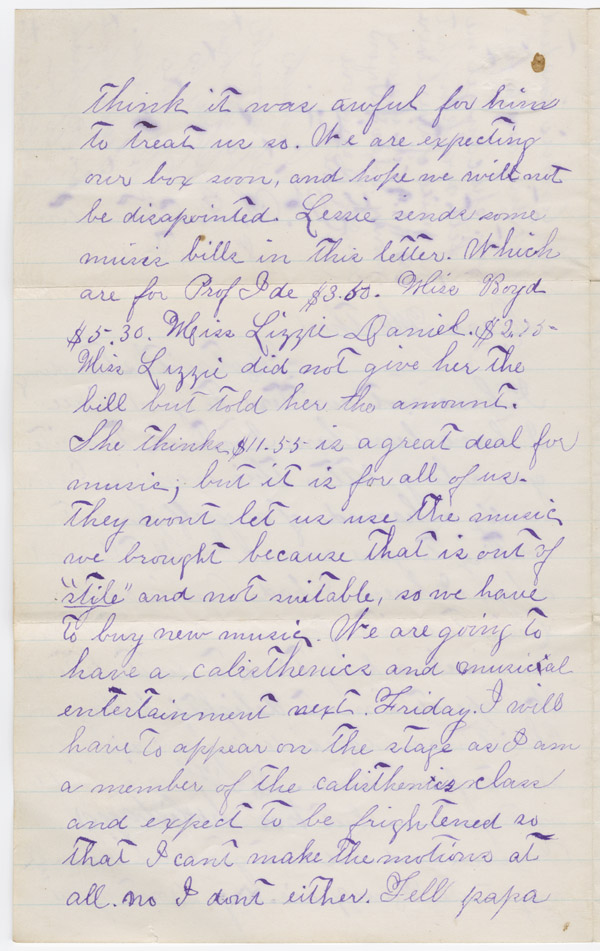 think it was awful for him
to treat us so. We are expecting
our box soon, and hope we will not
be disapointed. Lessie sends some
music bills in this letter. Which
are for Prof Ide $3.50. Miss Boyd
$5.30. Miss Lizzie Daniel. $2.75-
Miss Lizzie did not give her the
bill but told her the amount.
She thinks $11.55 is a great deal for
music; but it is for all of us.
they wont let us use the music
we brought because that is out of
"stile" and not suitable, so we have
to buy new music. We are going to
have a calisthenics and musicial
entertainment next. Friday. I will
have to appear on the stage as I am
a member of the calisthenics class
and expect to be frightened so
that I cant make the motions at
all. no I dont either. Tell papa